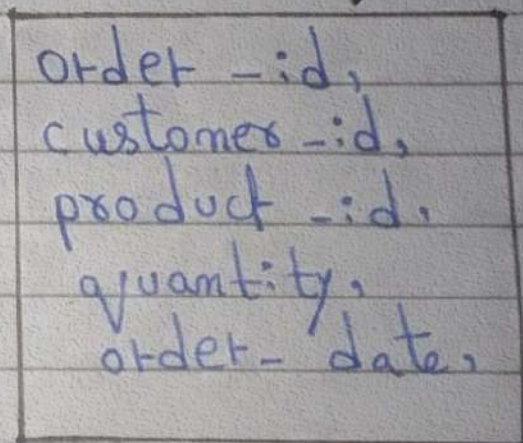 order -id,
customer -id,
product -id,
quantity,
order- date,